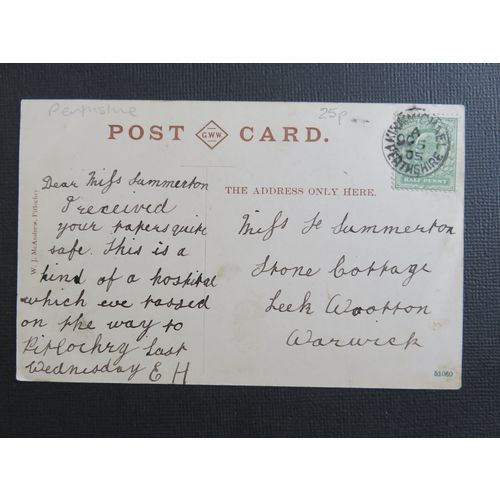 Perthshire
25p
POST CARD.
G.W.W.
KIRKMICHAEL
PERTHSHIRE
05
HALF PENNY
W. J. McAndrew, Pitlochry
THE ADDRESS ONLY HERE.
Dear Miss Summerton
I received
your papers quite
safe. This is a
kind of a hospital
which we passed
on the way to
Pitlochry Last
Wednesday E H
Miss F Summerton
Stone Cottage
Leek Wootton
Warwick
51060